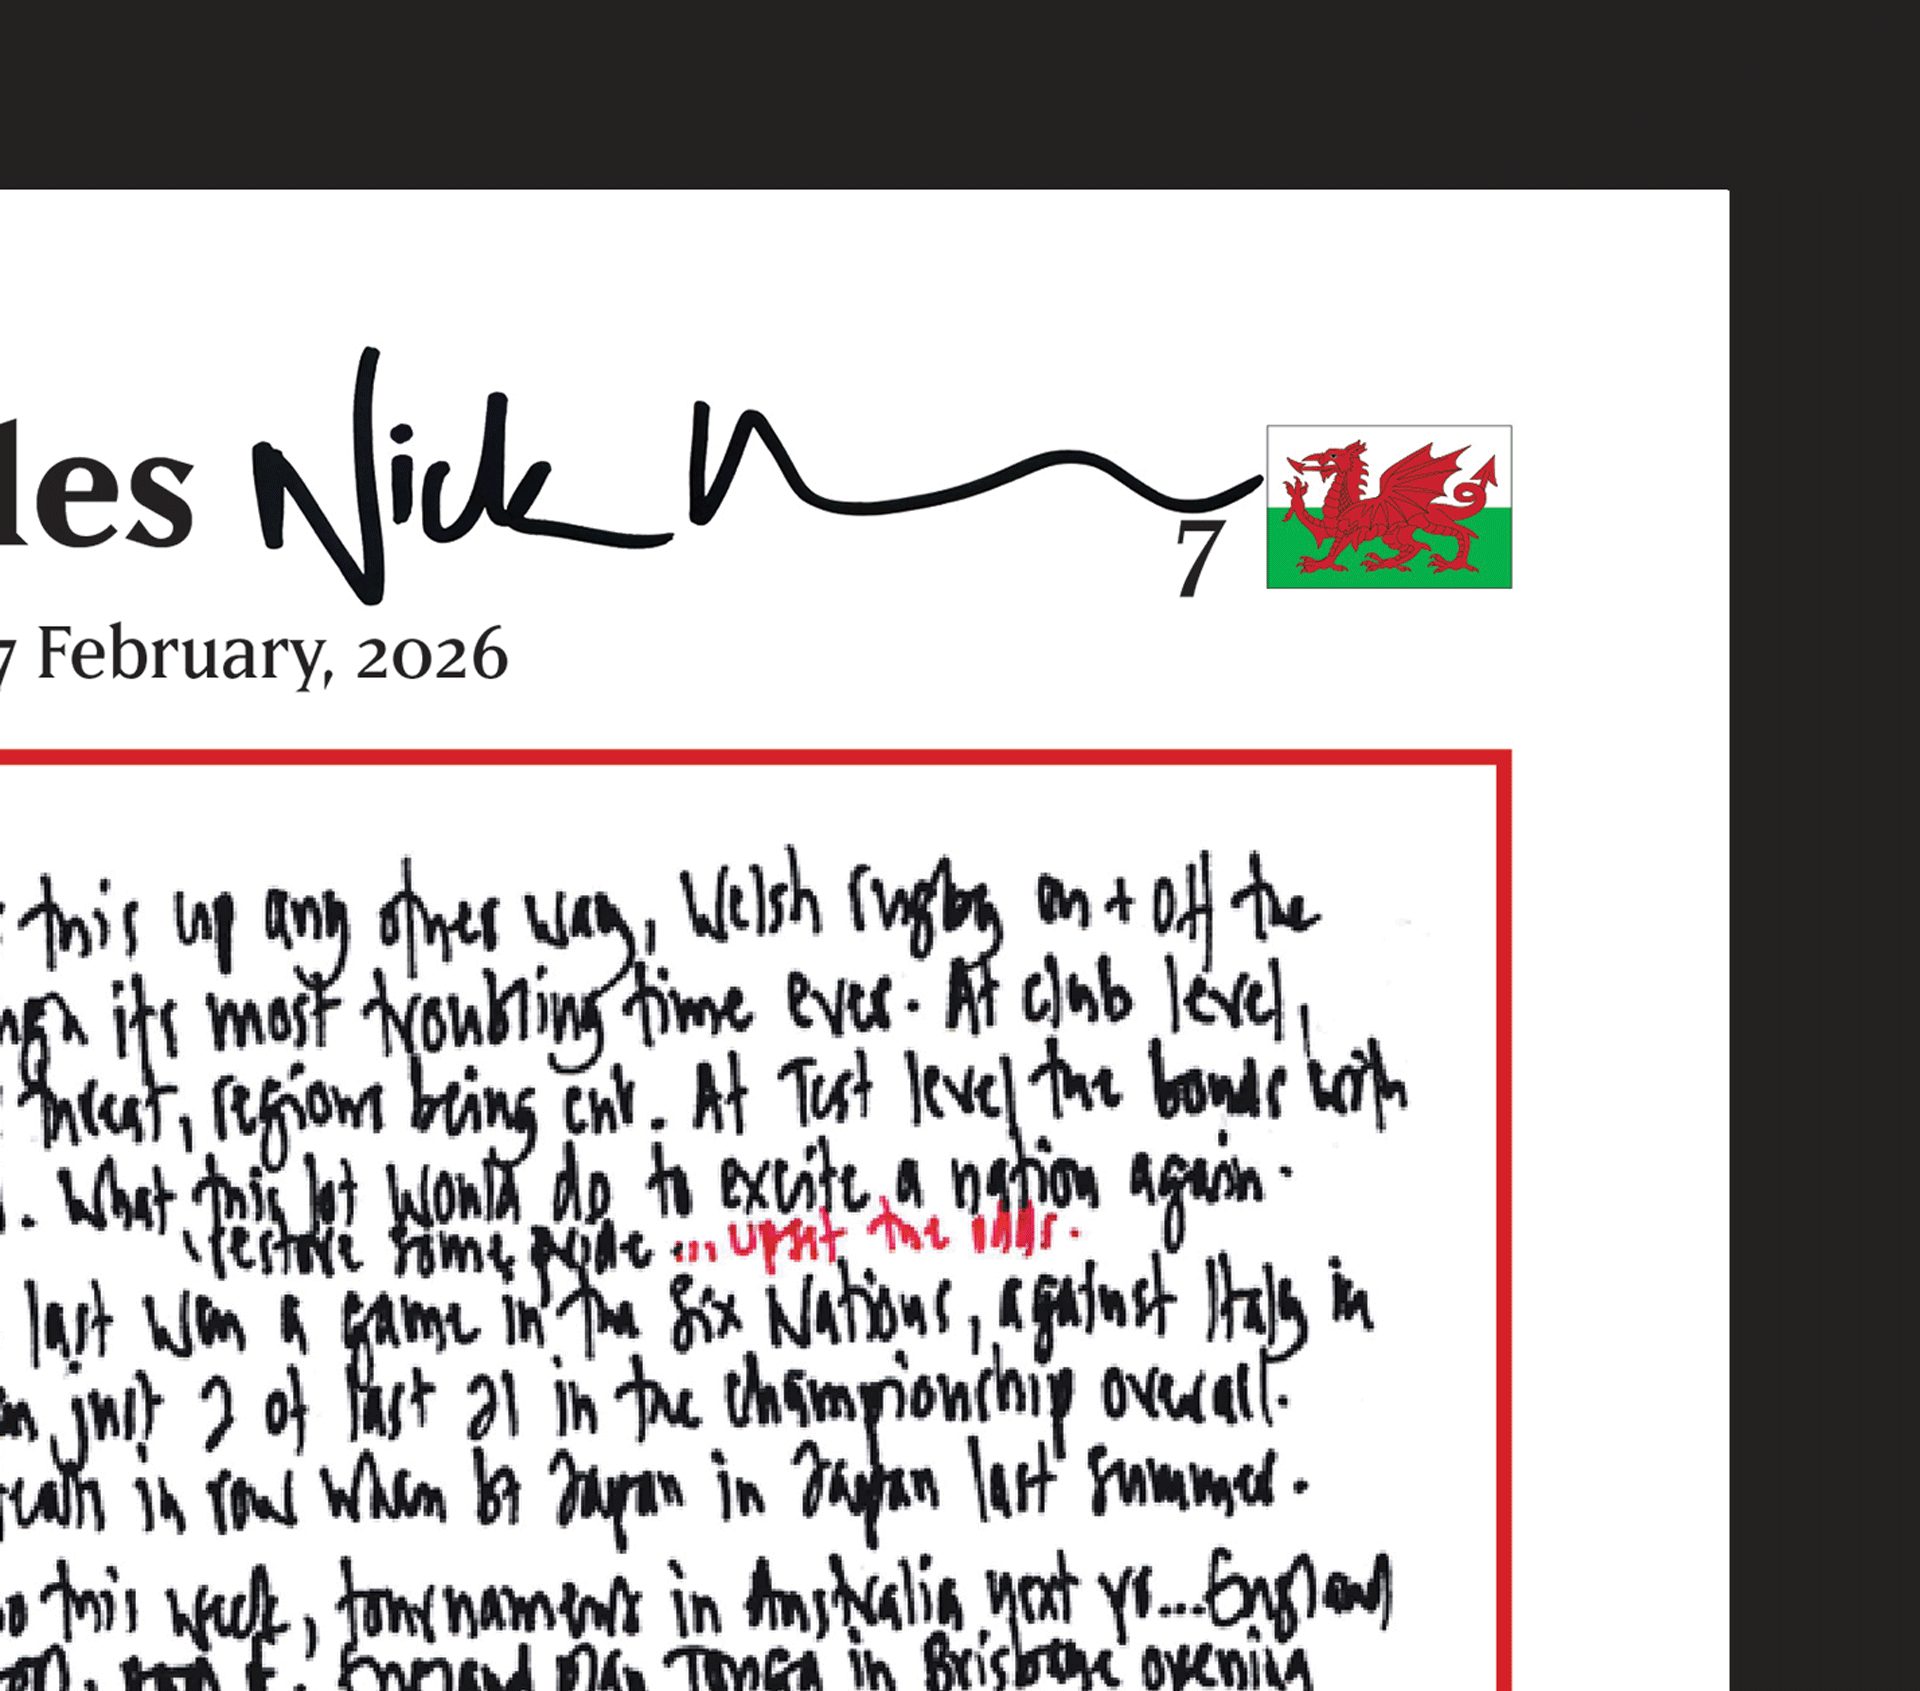 les Nick
7
7 February, 2026
this up any other way, Welsh rugby on + off the
its most troubling time ever. At club level,
threat, regions being cut. At Test level the bonds with
. What this lot would do to excite a nation again.
restore some pride ... upset the odds.
last won a game in the Six Nations, against Italy in
just 2 of last 21 in the Championship overall.
in row when bt Japan in Japan last summer.
this week, tournament in Australia next yr... England
England play Tonga in Brisbane opening